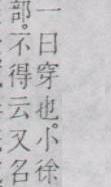 一曰穿也。小徐
部。不得云又名